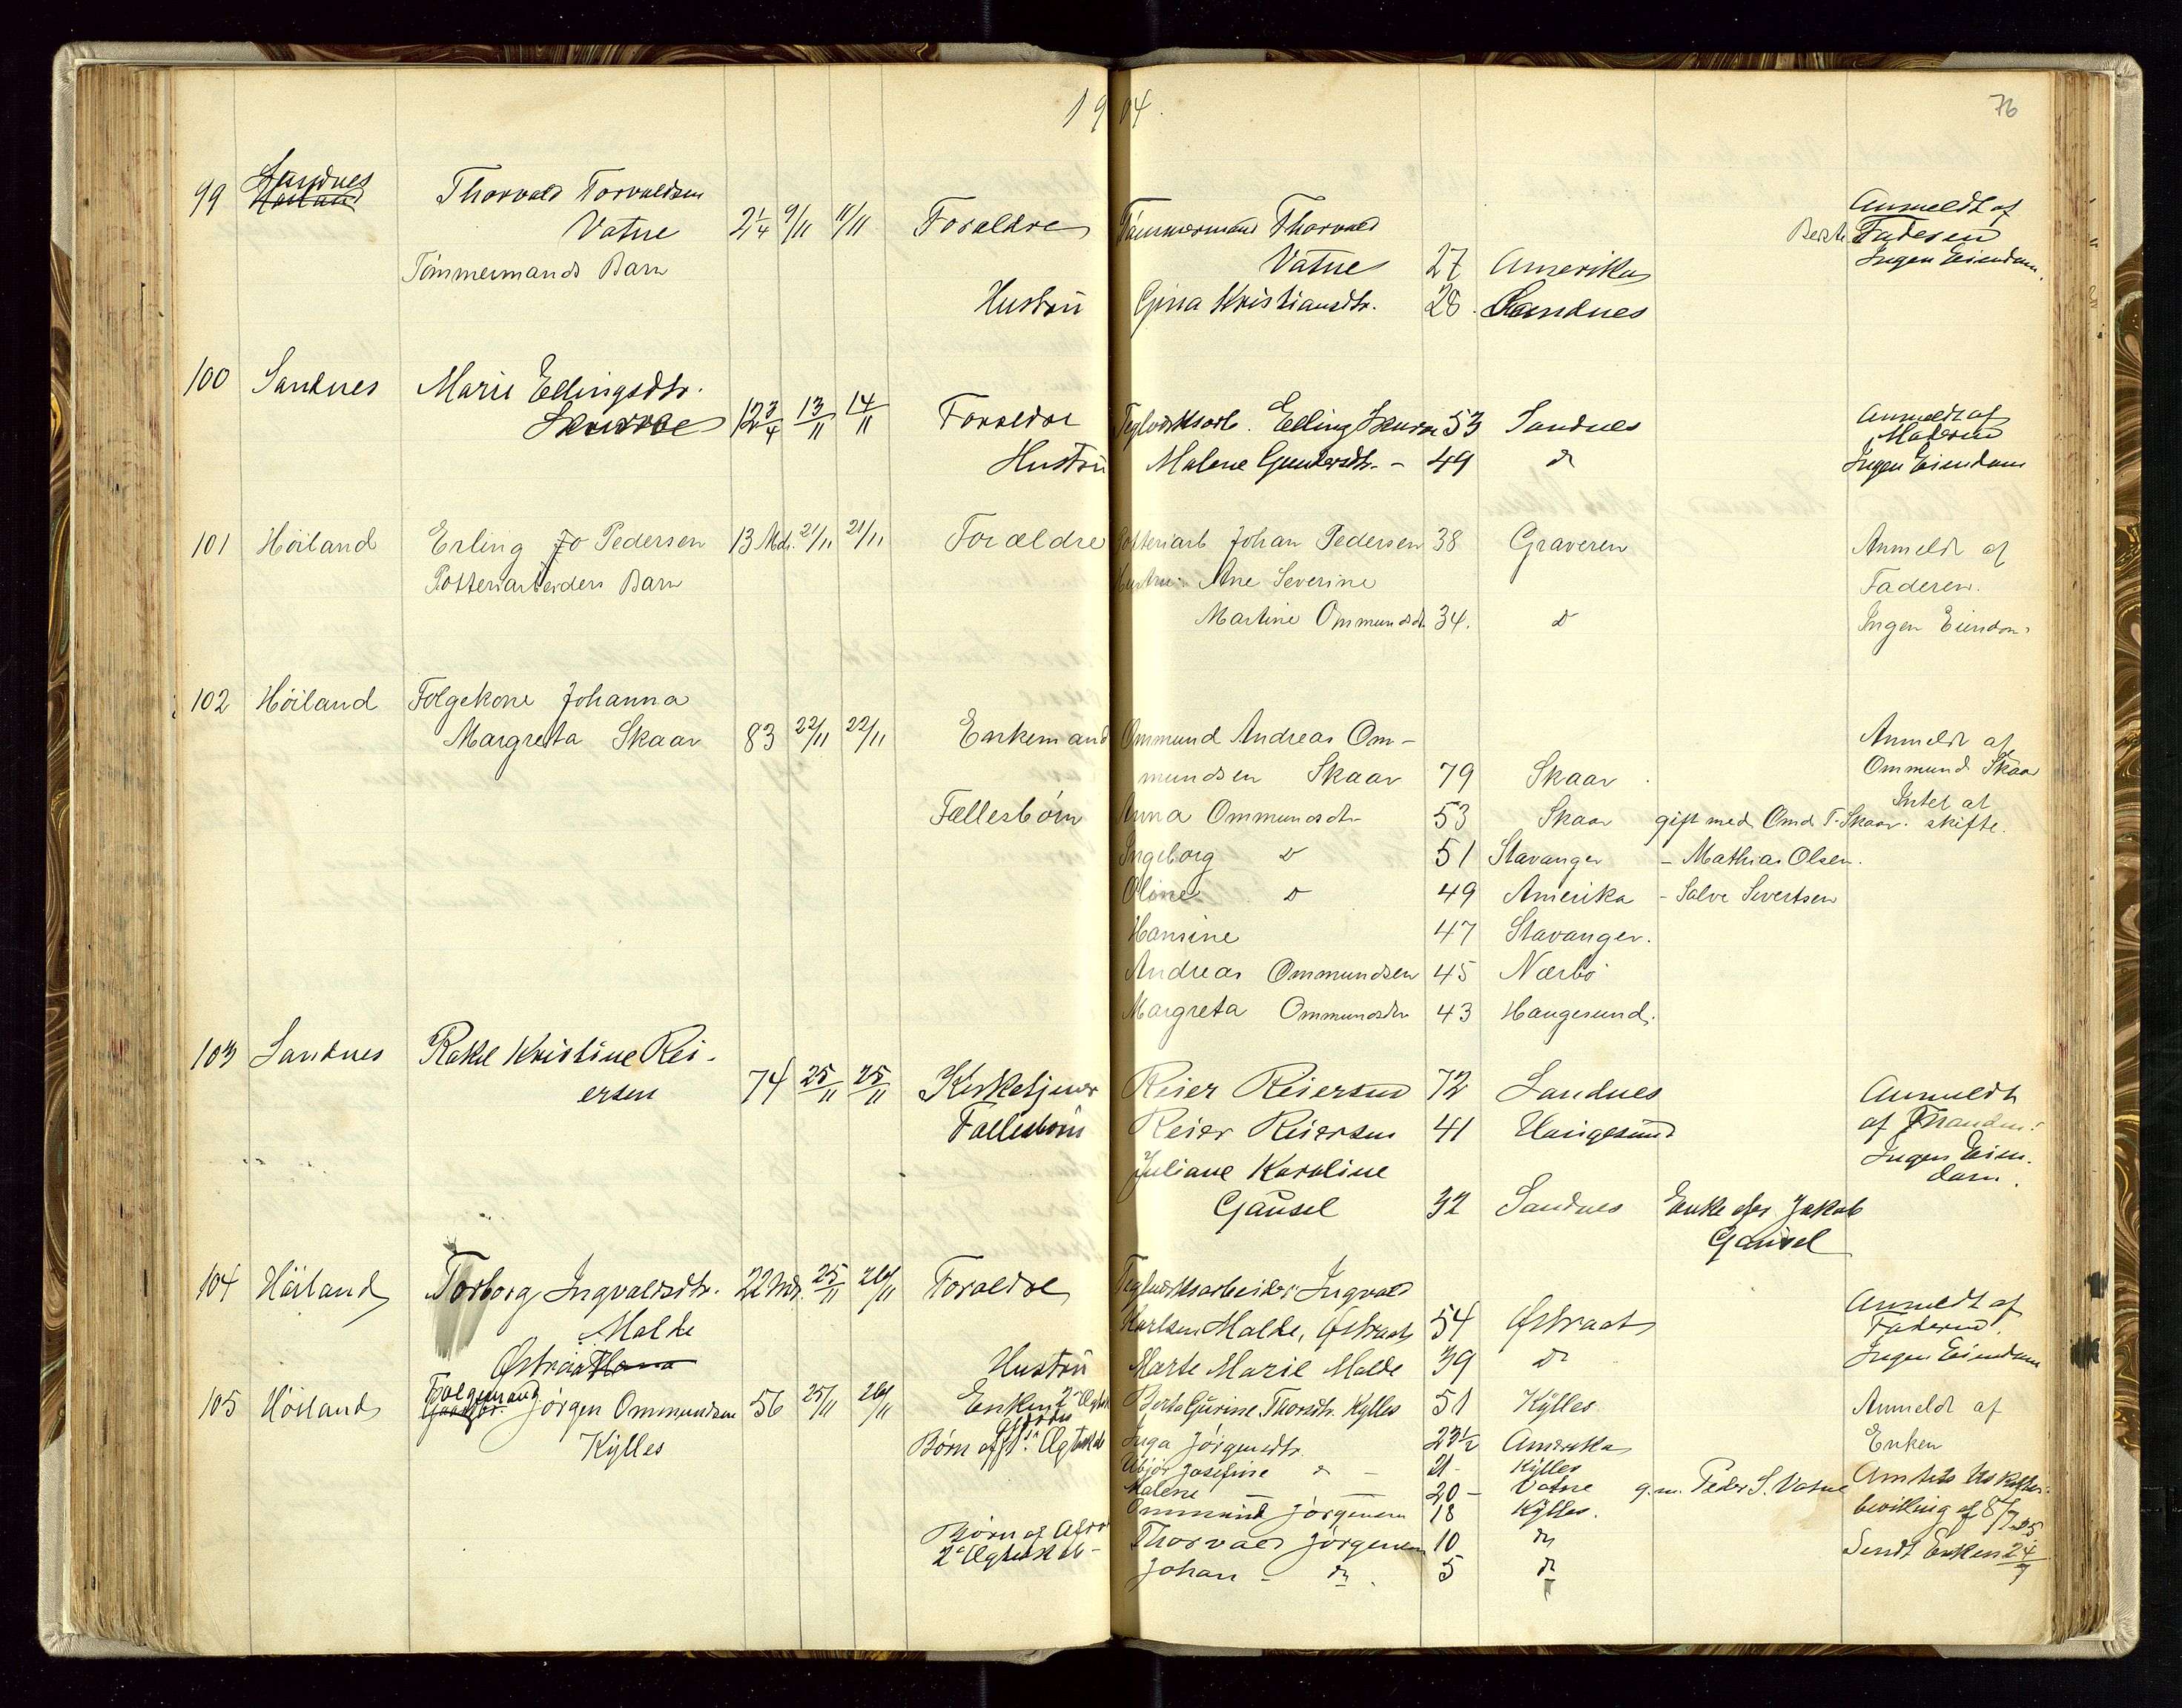 1904.
76
99 Sandnes Thorvald Torvaldsen
Høiland
Vatne 2 1/4 9/11 11/11 Forældre Tømmermand Thorvald
Tömmermands Barn
Vatne 27 Amerika
Hustru Gina Kristiansdtr. 28. Sandnes
Anmeldt af
Faderen
Ingen Eiendom.
100 Sandnes Marie Ellingsdtr.
12 3/4 13/11 14/11 Forældre Teglverksarb. Elling 53 Sandnes
Hustru Malene Gundersdtr. - 49 do
Anmeldt af
Moderen
Ingen Eiendom
101 Höiland Erling Jo Pedersen 13 Md. 21/11 21/11 Forældre Potteriarb Johan Pedersen 38 Graveren
Potteriarbeiders Barn Hustru: Ane Severine
Martine Ommundsdt. 34. do
Anmeldt af
Faderen.
Ingen Eiendom
102 Höiland Folgekone Johanna
Margreta Skaar 83 22/11 22/11 Enkemand Ommund Andreas Om-
mundsen Skaar 79 Skaar
Fællesbörn Anna Ommundsdtr 53 Skaar gift med Omd. T. Skaar.
Ingeborg do 51 Stavanger - Mathias Olsen.
Oline do 49 Amerika - Salve Sivertsen
Hansine 47 Stavanger.
Andreas Ommundsen 45 Nærbö
Margreta Ommundsdtr 43 Haugesund.
Anmeldt af
Ommund Skaar
Intet at
skifte.
103 Sandnes Rakel Kristine Rei-
ersen 74 25/11 25/11 Kirketjener Reier Reiersen 72 Sandnes
Fællesbörn Reier Reiersen 41 Haugesund
Juliane Karoline
Gausel 32 Sandnes Enke efter Jakob
Gausel
Anmeldt
af Manden.
Ingen Eien-
dom.
104 Höiland Torborg Ingvaldsdtr. 22 Md. 25/11 26/11 Forældre Teglverksarbeider Ingvald
Malde Karlsen Malde, Østraat 54 Østraat
Østraat Hustru Marte Marie Malde 39 do
Anmeldt af
Faderen.
Ingen Eiendom
105 Höiland Folgemand Jörgen Ommundsen 56 25/11 26/11 Enken Berte Gurine Thorsdtr. Kylles 51 Kylles
Kylles Börn Inga Jörgensdtr. 23 1/2 Amerika
Josefine do - 21 - Kylles
Malene 20 - Vatne g.m. Peder S. Vatne
Ommund Jörgensen 18 Kylles.
Börn af
2det Ægteskab - Thorvald Jörgensen 10 do
Johan - do. 5 do
Anmeldt af
Enken
Amtets
bevilling af
Sendt Enken 24/7